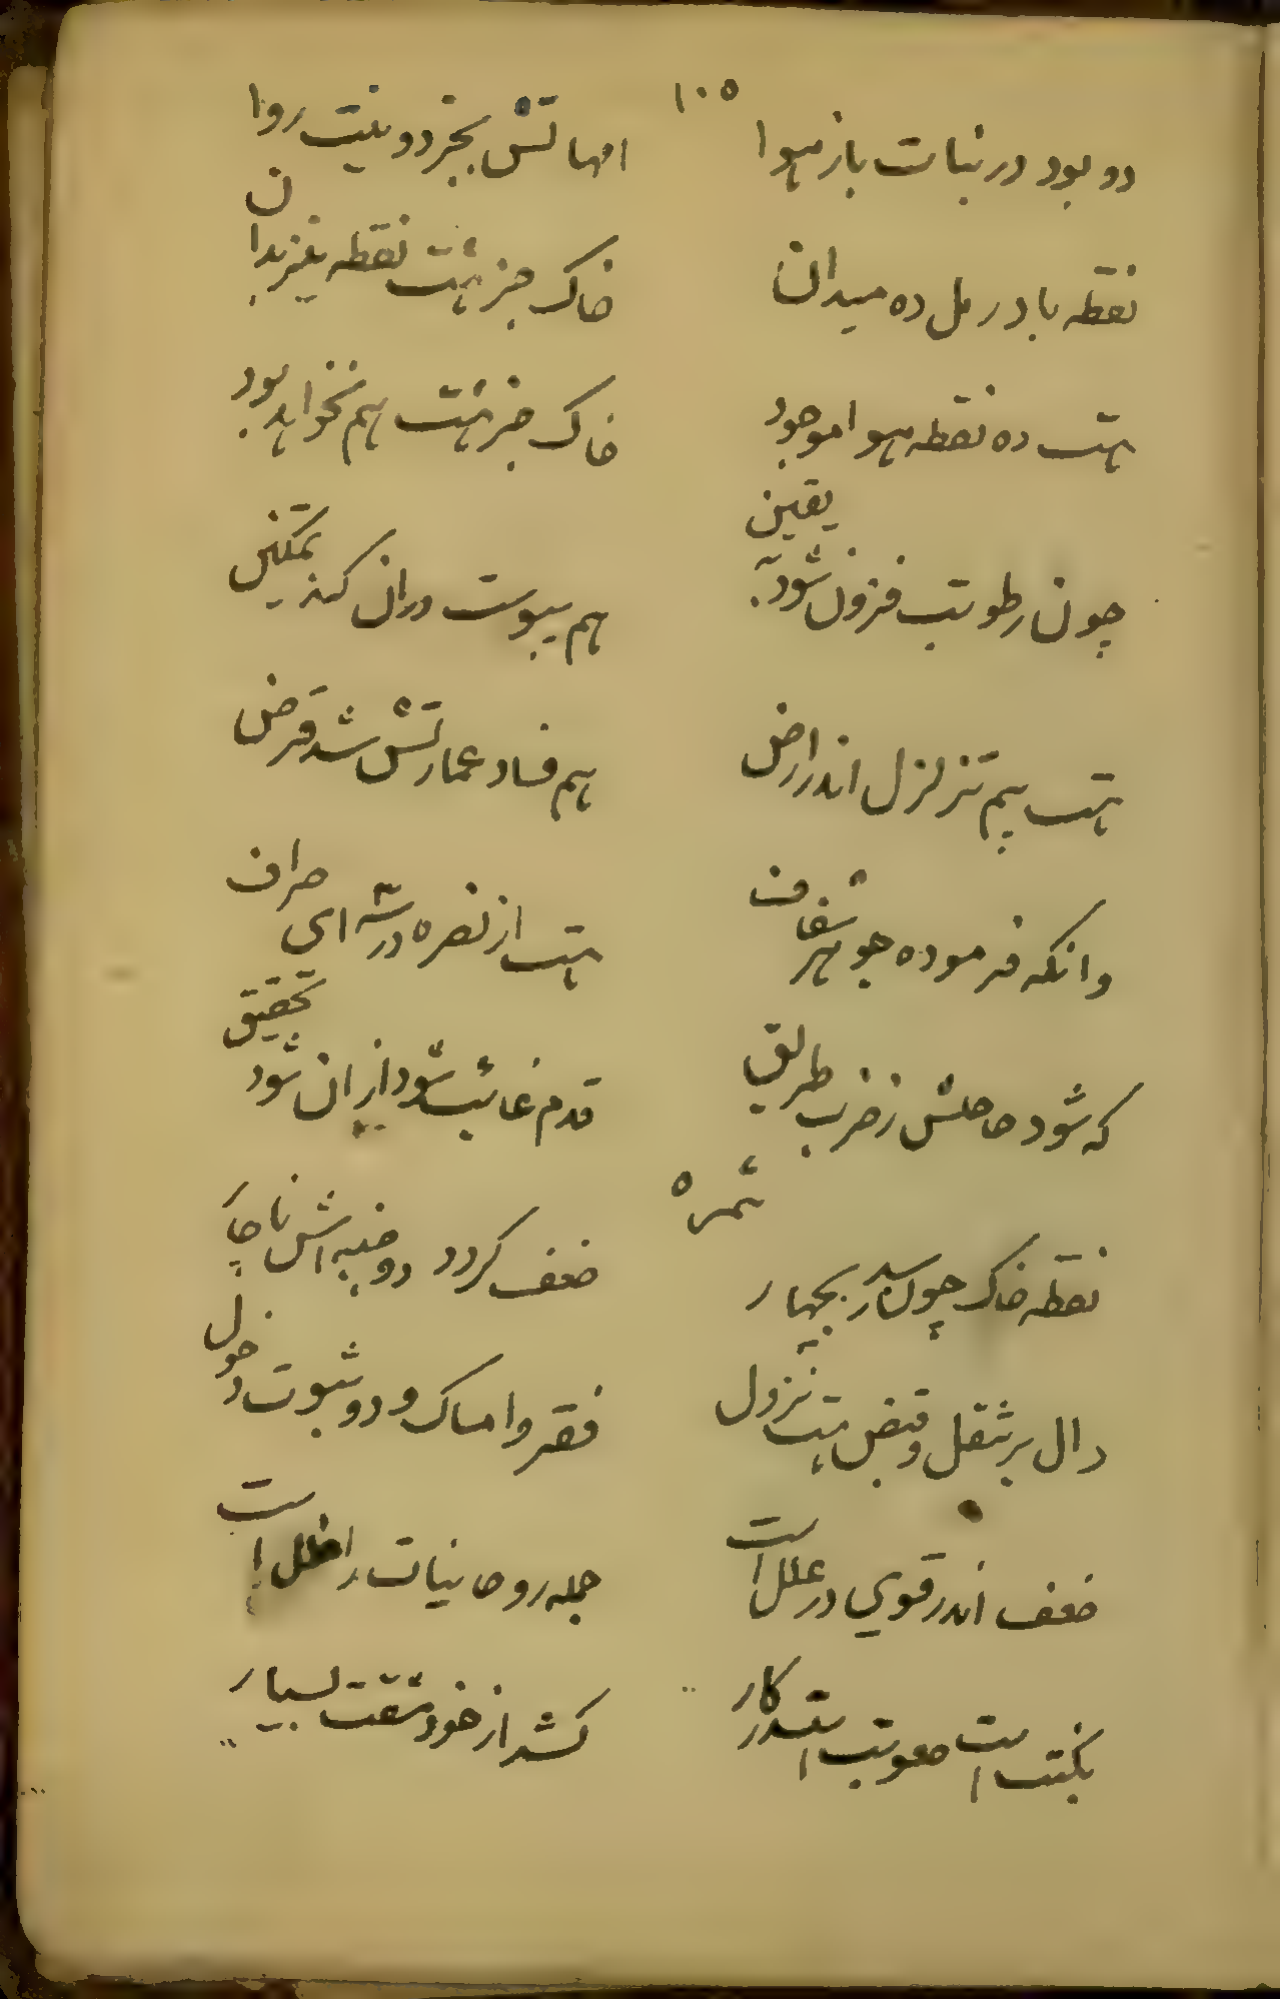 ۱۰۵
دو بود در نبات باز هوا
امهاتش بجز دو نیت روا
نقطه باد در مل ده میدان
خاک جز هشت نقطه نیز بدان
هست ده نقطه هوا موجود
خاک جز هشت هم نخواهد بود
چون رطوبت فزون شود یقین
هم یبوست دران کند تمکین
هست بیم تزلزل اندر ارض
هم فساد عمارتش شد فرض
وانکه فرموده جوهر شفاف
هست از نصره در شه ای صراف
که شود حاصلش ز ضرب طریق
قدم غائب شود ازان شود تحقیق
ثمره
نقطه خاک چون رسد بچهار
ضعف کردد دو جنبه اش ناچار
دال بر ثقل و قبض هست نزول
فقر و امساک و دو ثبوت دخول
ضعف اندر قوی در علل است
جمله روحانیات را خلل است
نکبت است صعوبت است در کار
کشد از خود مشقت بسیار